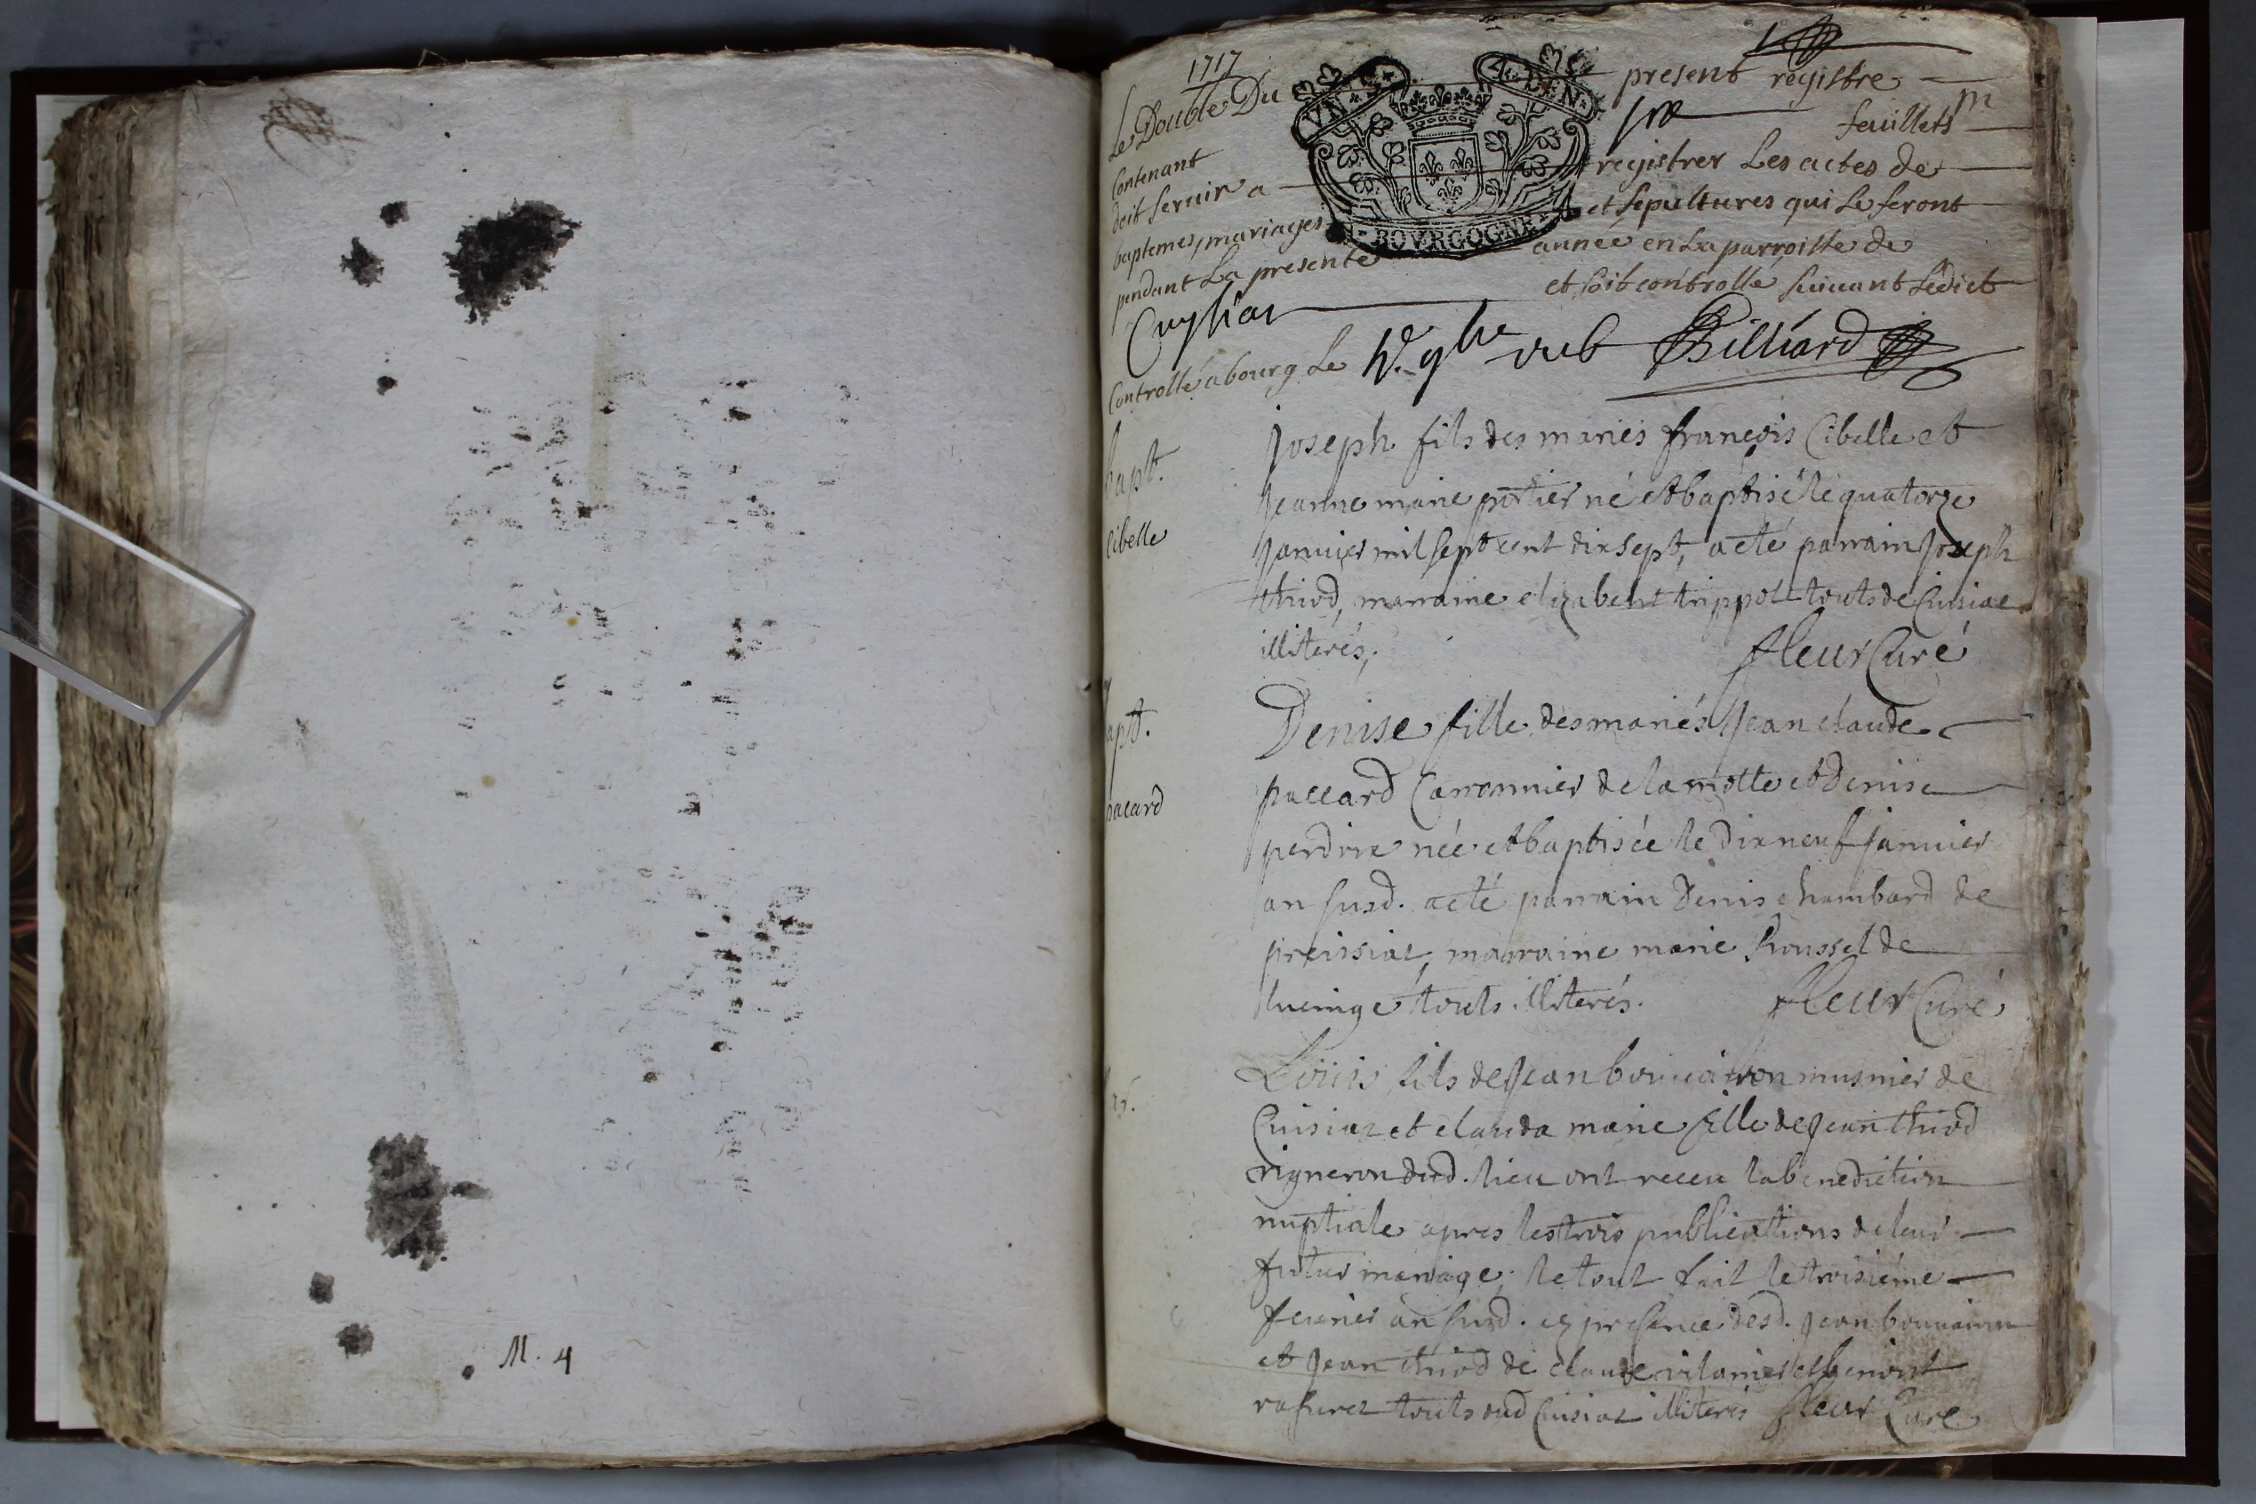 M. 4
1717
Le Double Du present registre
Contenant feuillets
doit servir a registrer Les actes de
baptemes, mariages et sepultures qui se feront
pendant La presente année en La parroisse de
Cuysiat et soit controllé suivant Ledict
BOVRGOGNE
Controllé a bourg Le Billiard
bapt.
Cibelle
Joseph fils des mariés françois Cibelle et
Jeanne marie portier né et baptisé le quatorze
Janvier mil sept cent dix sept, a eté parrain Joseph
thiod, marraine elizabeht trippot touts de Cuisiat
illiterés, fleur Curé
apt.
pacard
Denise fille des mariés Jean claude
paccard Carronnier de la motte et Denise
perdrix née et baptisée le dix neuf janvier
an susd. a eté parrain Denis chambard de
preissiat, marraine marie Roussel de
lucinge touts illiterés. fleur Curé
Loüis fils de Jean bouvairon musnier de
Cuisiat et clauda marie fille de Jean thiod
vigneron dud. lieu ont receu la benediction
nuptiale apres les trois publications de leur
futur mariage; le tout fait le troisiéme
fevrier an susd. en presence desd. Jean bouvairon
et Jean thiod de claude vilanier et benoist
touts dud Cuisiat illiterés fleur Curé